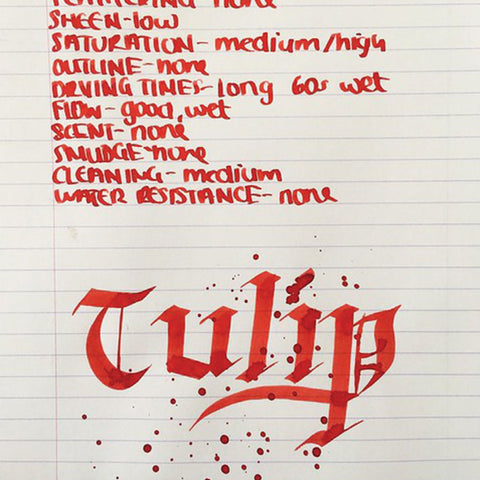 FEATHERING - none
SHEEN - low
SATURATION - medium/high
OUTLINE - none
DRYING TIMES - long 60s wet
FLOW - good, wet
SCENT - none
SMUDGE - none
CLEANING - medium
WATER RESISTANCE - none
Tulip